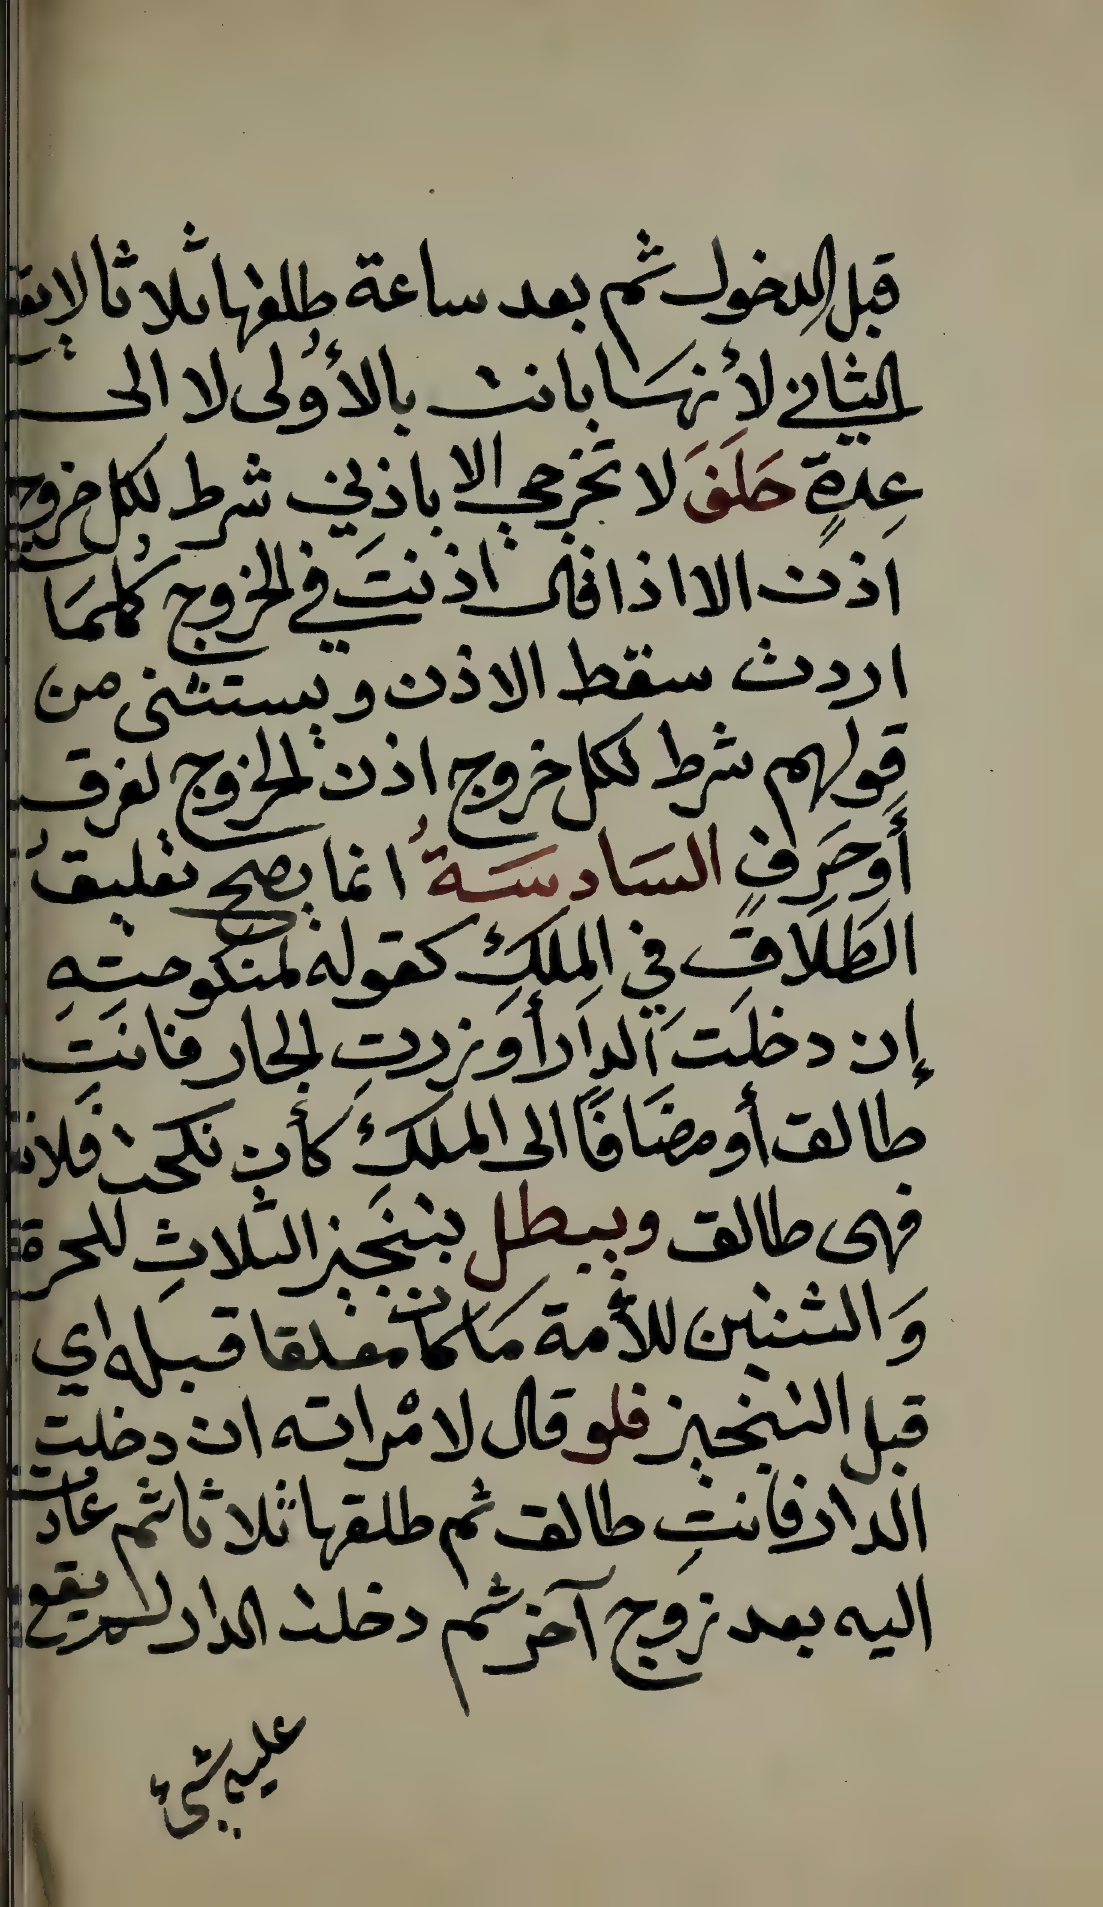 قبل الدخول ثم بعد ساعة طلقها ثلاثا لا يقع
الثاني لأنها بانت بالأولى لا الى
عِدةٍ حَلَفَ لا تخرجي الا باذني شرط لكل خروج
اذن الا اذا قال اذنت في الخروج كلمَا
اردت سقط الاذن ويستثنى من
قولهم شرط لكل خروج اذن الخروج لغرق
أوحَرقٍ السَادسَةُ انما يصح تعليقُ
الطَلَاقِ في المِلكِ كقوله لمنكوحتِهِ
إن دخلتِ الدَارَ أو زرتِ الجار فانتِ
طالق أو مضَافًا الى الملكِ كأن نكحت فلانة
فهى طالق ويبطل بتنجيز الثلاثِ للحرة
وَالثنتين للأمة مَا كان معلقا قبله اي
قبل التنجيز فلو قال لامْراته ان دخلتِ
الدار فانتِ طالق ثم طلقها ثلاثا ثم عادت
اليه بعد زوج آخر ثم دخلت الدار لم يقع
عليه شيء